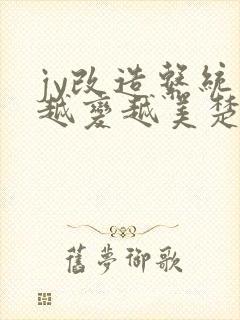 jy改造系統
越變越美楚
舊夢御歌